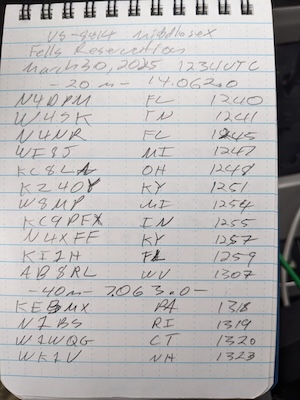 US-8414 Middlesex
Fells Reservation
March 30, 2025 1234 UTC
-20 m- 14.062.0
N4DPM FL 1240
W4SK TN 1241
N4NR FL 1245
WF8J MI 1247
KC8LN OH 1248
KZ4OY KY 1251
W8MP MI 1254
KC9PFX IN 1255
N4XFF KY 1257
KI1H FL 1259
AB8RL WV 1307
-40m- 7.063.0-
KE3MX PA 1318
N1BS RI 1319
W1WQG CT 1320
WK1V NH 1323